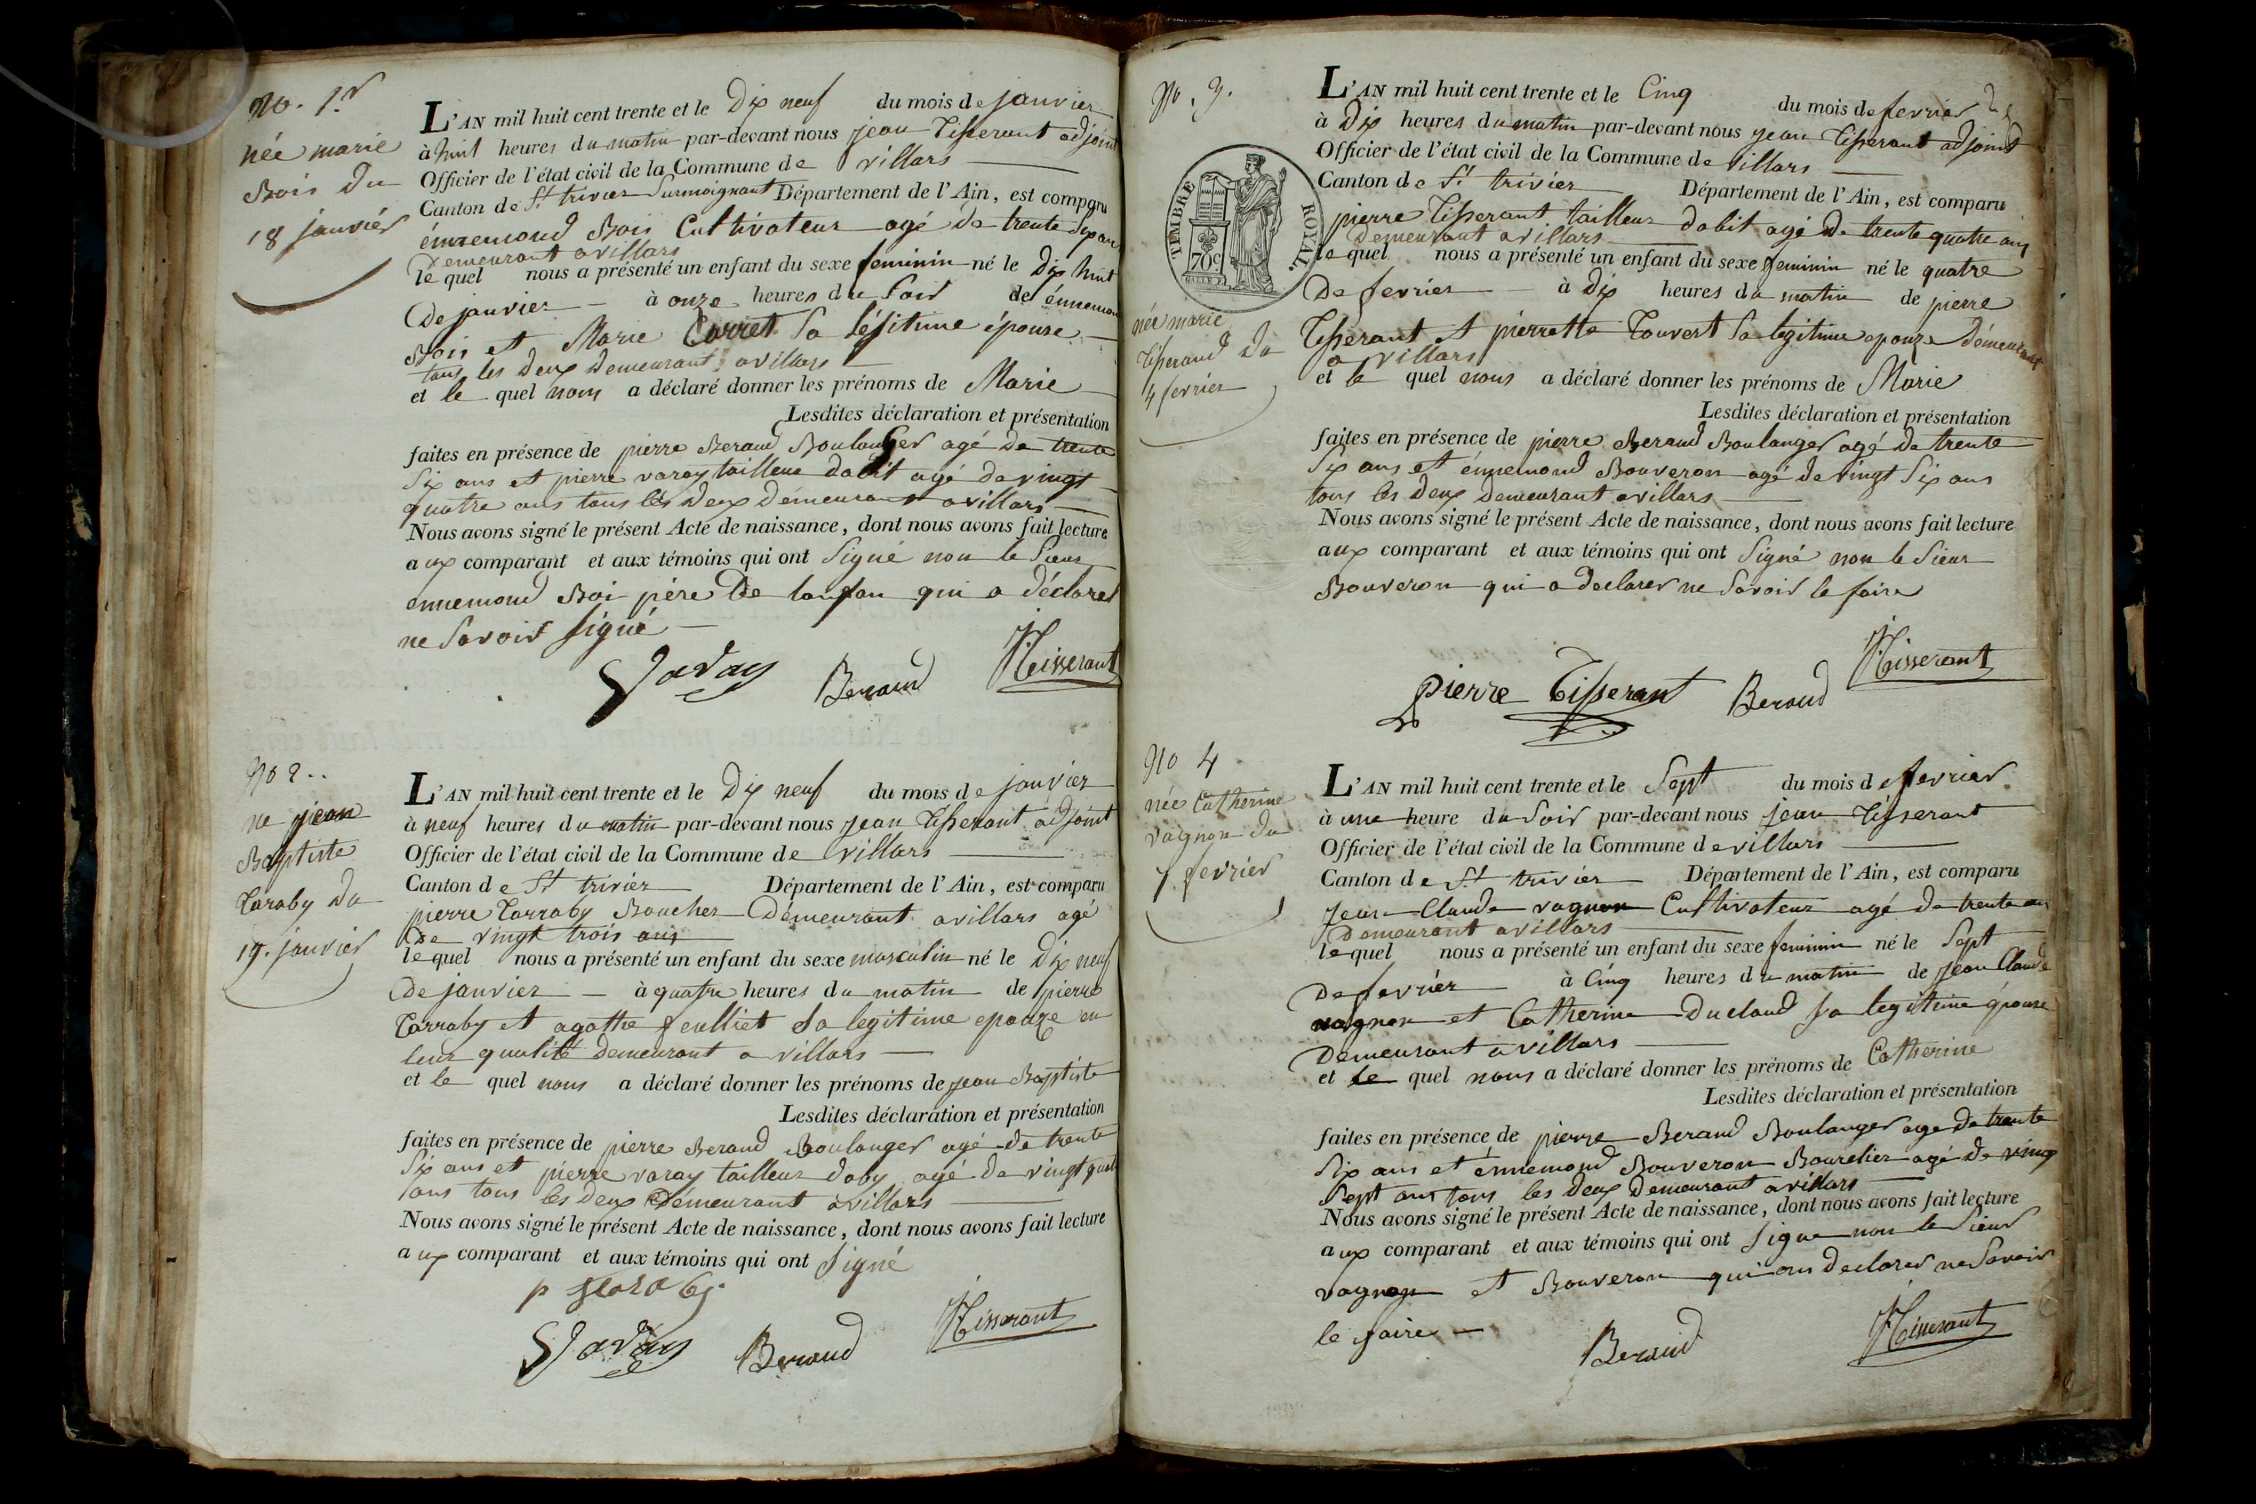 No. 1.er
née marie
Bois du
18 janvier
L'AN mil huit cent trente et le Dix neuf du mois de janvier
à huit heures du matin par-devant nous jean Tisserant adjoint
Officier de l'état civil de la Commune de villars
Canton de St trivier Surmoignant Département de l'Ain, est comparu
énnemond Bois Cultivateur agé de trente Six ans
Demeurant a villars
le quel nous a présenté un enfant du sexe feminin né le Dix huit
De janvier à onze heures du Soir de énnemond
Bois et Marie Carret Sa légitime épouse
tous les Deux Demeurant a villars
et le quel nous a déclaré donner les prénoms de Marie
Lesdites déclaration et présentation
faites en présence de pierre Beraud Boulanger agé de trente
Six ans et pierre varay tailleur dabit agé de vingt
quatre ans tous les Deux Demeurant a villars
Nous avons signé le présent Acte de naissance, dont nous avons fait lecture
aux comparant et aux témoins qui ont Signé non le Sieur
ennemond Boi père De lanfan qui a déclarer
ne Savoir Signé
Varay Beraud JTisserant
No 2..
ne jean
Baptiste
Taraby Du
19. janvier
L'AN mil huit cent trente et le Dix neuf du mois de janvier
à neuf heures du matin par-devant nous jean Tisserant adjoint
Officier de l'état civil de la Commune de villars
Canton de St trivier Département de l'Ain, est comparu
pierre Tarraby Boucher Demeurant a villars agé
De vingt trois ans
le quel nous a présenté un enfant du sexe masculin né le Dix neuf
De janvier à quatre heures du matin de pierre
Tarraby et agathe feulliet Sa legitime epouze en
leur qualité Demeurant a villars
et le quel nous a déclaré donner les prénoms de jean Baptiste
Lesdites déclaration et présentation
faites en présence de pierre Beraud Boulanger agé de trente
Six ans et pierre varay tailleur daby agé de vingt quat
ans tous les deux Demeurant a villars
Nous avons signé le présent Acte de naissance, dont nous avons fait lecture
aux comparant et aux témoins qui ont Signé
p taraby
Varay Beraud JTisserant
No. 3.
TIMBRE ROYAL.
70c
née marie
Tisserand Du
4 fevrier
L'AN mil huit cent trente et le Cinq du mois de fevrier
à Dix heures du matin par-devant nous jean Tisserant adjoint
Officier de l'état civil de la Commune de villars
Canton de St trivier Département de l'Ain, est comparu
pierre Tisserant tailleur dabit agé de trente quatre ans
Demeurant a villars
le quel nous a présenté un enfant du sexe feminin né le quatre
De fevrier à Dix heures du matin de pierre
Tisserant et pierrette Touvert Sa legitime epouze Démeurant
a villars
et le quel nous a déclaré donner les prénoms de Marie
Lesdites déclaration et présentation
faites en présence de pierre Beraud Boulanger agé de trente
Six ans et énnemond Bouveron agé de vingt Six ans
tous les Deux Demeurant a villars
Nous avons signé le présent Acte de naissance, dont nous avons fait lecture
aux comparant et aux témoins qui ont Signé non le Sieur
Bouveron qui a declarer ne Savoir le faire
pierre Tisserant Beraud JTisserant
No 4
née Catherine
vagnon du
7 fevrier
L'AN mil huit cent trente et le Sept du mois de fevrier
à une heure du Soir par-devant nous jean Tisserant
Officier de l'état civil de la Commune de villars
Canton de St trivier Département de l'Ain, est comparu
jean Claude vagnon Cultivateur agé de trente ans
Demeurant a villars
le quel nous a présenté un enfant du sexe feminin né le Sept
De fevrier à Cinq heures du matin de jean Claude
vagnon et Catherine Duclaud sa legitime épouse
Demeurant a villars
et le quel nous a déclaré donner les prénoms de Catherine
Lesdites déclaration et présentation
faites en présence de pierre Beraud Boulanger age de trente
Six ans et énnemond Bouveron Bourelier agé de vingt
Sept ans tous les Deux Demeurant a villars
Nous avons signé le présent Acte de naissance, dont nous avons fait lecture
aux comparant et aux témoins qui ont Signe non le Sieur
vagnon et Bouveron qui ons declarer ne Savoir
le faire
Beraud JTisserant